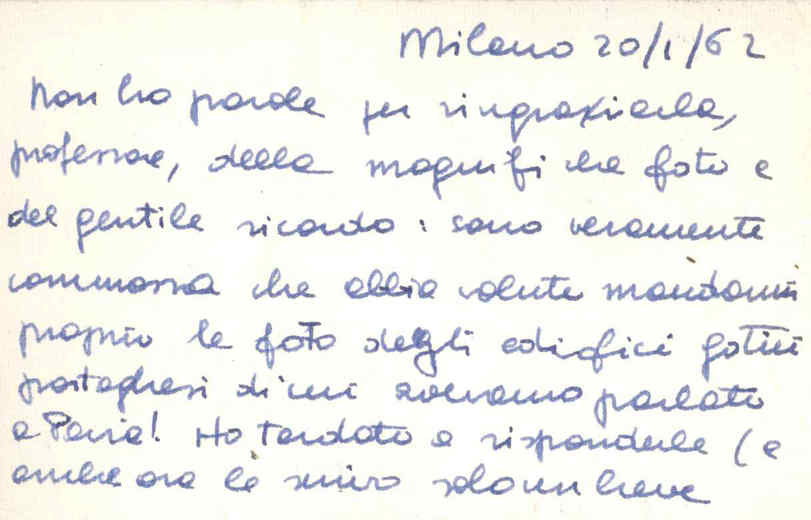 Milano 20/1/62
Non ho parole per ringraziarla,
professore, delle magnifiche foto e
del gentile ricordo: sono veramente
commossa che abbia voluto mandarmi
proprio le foto degli edifici gotici
portoghesi di cui avevamo parlato
a Pavia! Ho tardato a risponderle (e
anche ora le scrivo solo un breve